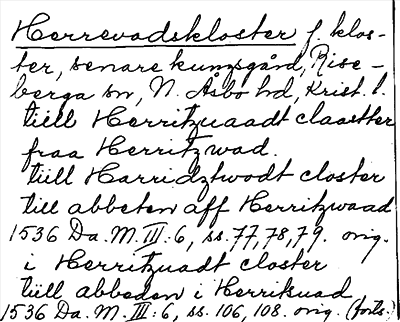 Herrevadskloster f. klos-
ter, senare kungsgård, Rise-
berga sn, N. Åsbo hd, Krist. l.
tiill Herritzuaadt claastter
fraa Herritzwad.
tiill Harridztwodt closter
till abbeten aff Herritzwaad
1536 Da. M. III:6, ss. 77, 78, 79. orig.
i Herritzuadt closter
tiill abbeden i Herriksuad
1536 Da. M. III:6, ss. 106, 108. orig. (forts.)